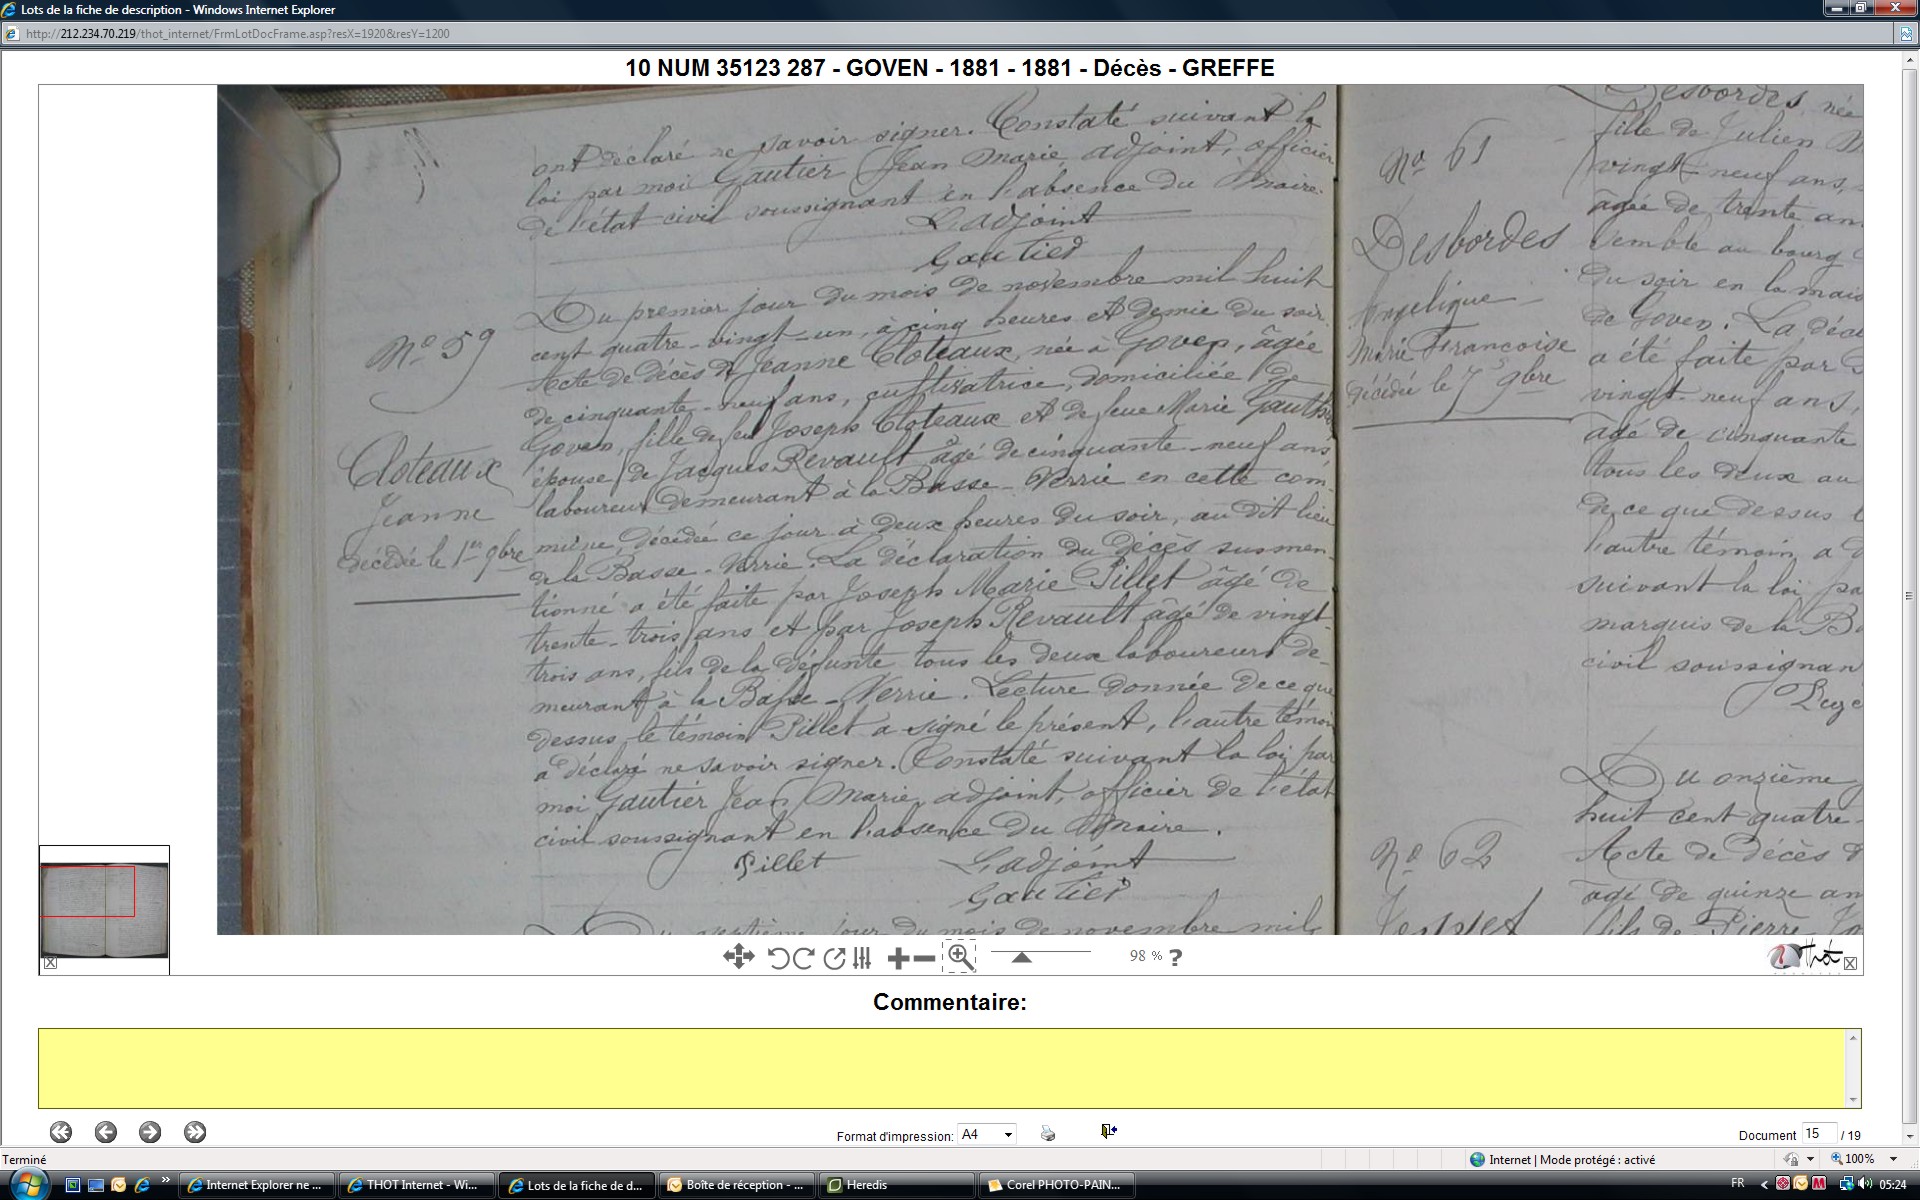 Lots de la fiche de description - Windows Internet Explorer
http://212.234.70.219/thot_internet/FrmLotDocFrame.asp?resX=1920&resY=1200
10 NUM 35123 287 - GOVEN - 1881 - 1881 - Décès - GREFFE
ont déclaré ne savoir signer. Constaté suivant la
loi par moi Gautier Jean Marie, adjoint, officier
de l'état civil soussignant en l'absence du Maire.
L'adjoint
Gautier
No 59
Cloteaux
Jeanne
décédé le 1er 9bre
Du premier jour du mois de novembre mil huit
cent quatre-vingt-un, à cinq heures et demie du soir.
Acte de décès de Jeanne Cloteaux, née à Goven, âgée
de cinquante-neuf ans, cultivatrice, domiciliée de
Goven, fille de feu Joseph Cloteaux et de feue Marie
épouse de Jacques Revault âgé de cinquante-neuf ans
laboureur demeurant à la Basse-Verrie en cette com-
mune, décédée ce jour à deux heures du soir, au dit lieu
de la Basse-Verrie. La déclaration du décès susmen-
tionné a été faite par Joseph Marie Pillet âgé de
trente-trois ans et par Joseph Revault âgé de vingt-
trois ans, fils de la défunte tous les deux laboureurs de-
meurant à la Basse-Verrie. Lecture donnée de ce que
dessus, le témoin Pillet a signé le présent, l'autre témoin
a déclaré ne savoir signer. Constaté suivant la loi par
moi Gautier Jean Marie, adjoint, officier de l'état
civil soussignant en l'absence du Maire.
Pillet
L'adjoint
Gautier
Du septième jour du mois de novembre mil
No 61
Desbordes
Angelique
Marie Francoise
décédée le 7 9bre
Desbordes, née
fille de Julien
vingt-neuf ans,
âgée de trente an
semble au bourg
du soir en la mais
de Goven. La décl
a été faite par
vingt-neuf ans,
âgé de cinquante
tous les deux au
de ce que dessus
l'autre témoin a
suivant la loi pa
marquis de la B
civil soussignan
No 62
Du onzième
huit cent quatre-
Acte de décès d
âgé de quinze an
fils de Pierre
98 % ?
Thot
Commentaire:
Format d'impression: A4
Document 15 / 19
Terminé
Internet | Mode protégé : activé
100%
Internet Explorer ne ...
THOT Internet - Wi...
Lots de la fiche de d...
Boîte de réception - ...
Heredis
Corel PHOTO-PAIN...
FR
05:24